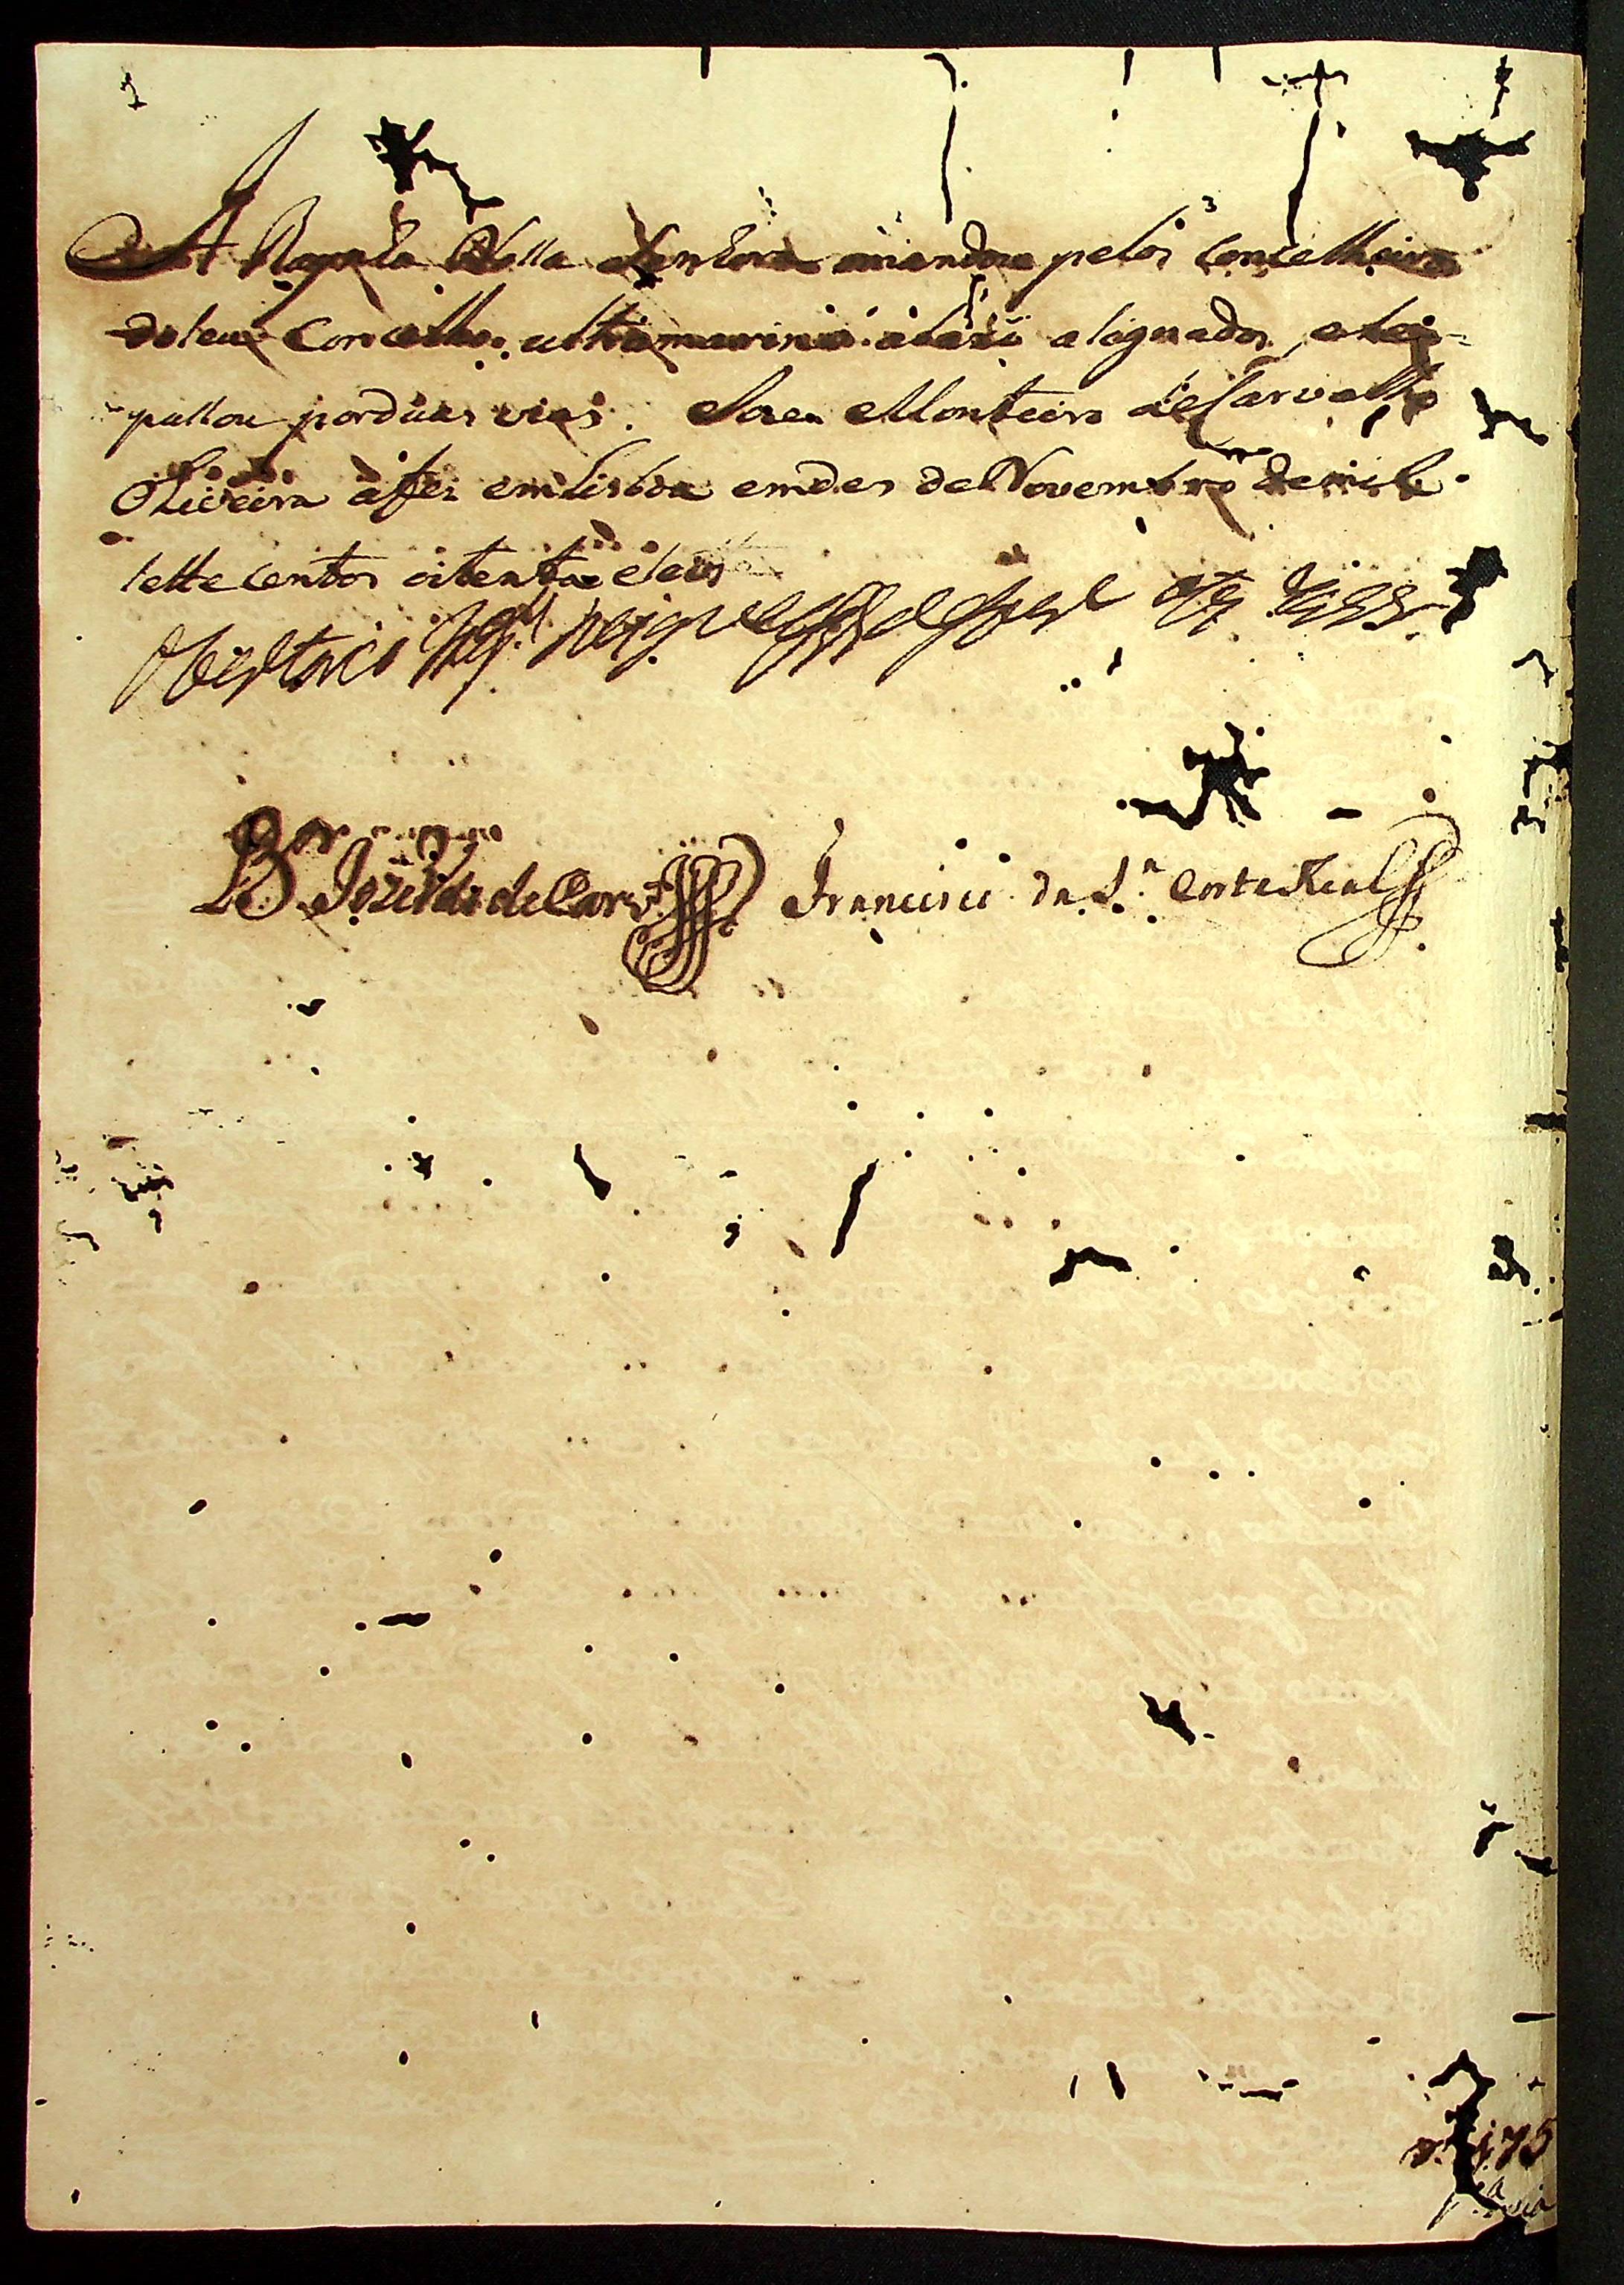 A Raynha Nossa Senhora mandou pelos Concelheiros
do seu Concelho ultramarino abaixo asignados, e se
passou por duas vias. Monteiro de Carvalho
Oliveira a fez em Lisboa em des de Novembro de mil
sette centos oitenta e seis
O Secretario
Bor Joze Vaz de Carvo Francisco da Sa Corte Real
175
1a via